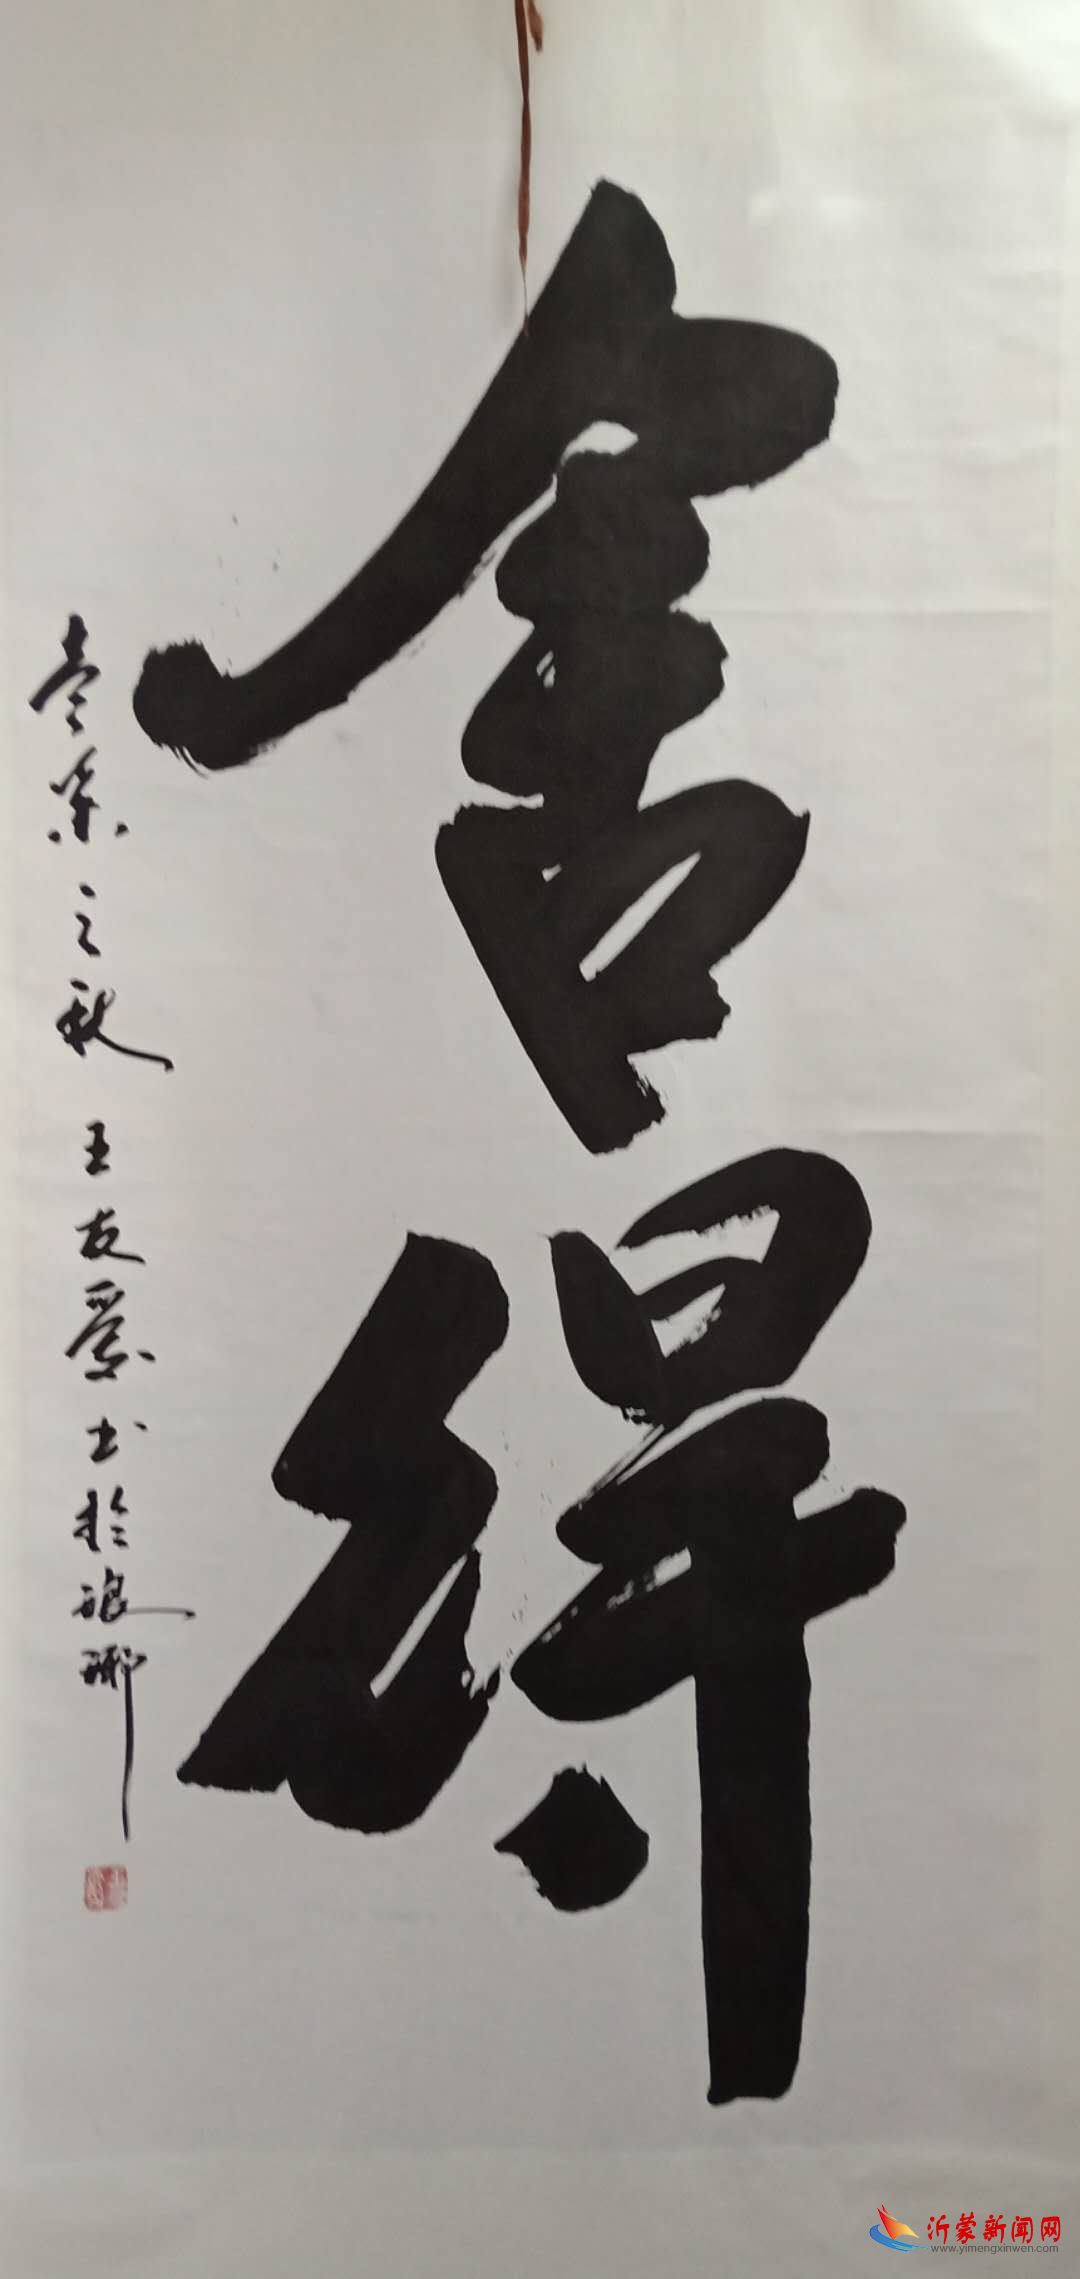 舍得
之秋 王友爱书於琅琊
沂蒙新闻网
www.yimengxinwen.com